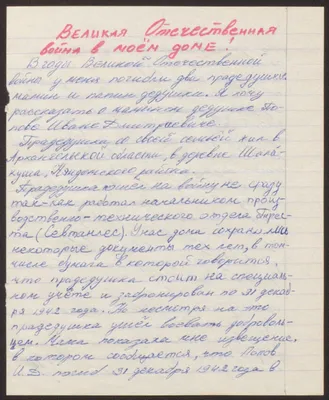 Великая Отечественная
война в моём доме.
В годы Великой Отечественной
войны у меня погибли два прадедушки,
мамин и папин дедушки. Я хочу
рассказать о мамином дедушке По-
пове Иване Дмитриевиче.
Прадедушка со своей семьёй жил в
Архангельской области, в деревне Шала-
куша, Няндомского района.
Прадедушка пошёл на войну не сразу
так-как работал начальником произ-
водственно-технического отдела Трес-
та (Севтранлес). У нас дома сохрани лись
некоторые документы тех лет, в том-
числе бумага в которой говорится,
что прадедушка стоит на специаль-
ном учёте и забронирован по 31 декаб-
ря 1942 года. Но несмотря на это
прадедушка ушёл воевать доброволь-
цем. Мама показала мне извещение,
в котором сообщается, что Попов
И.Д. погиб 31 декабря 1942 года в